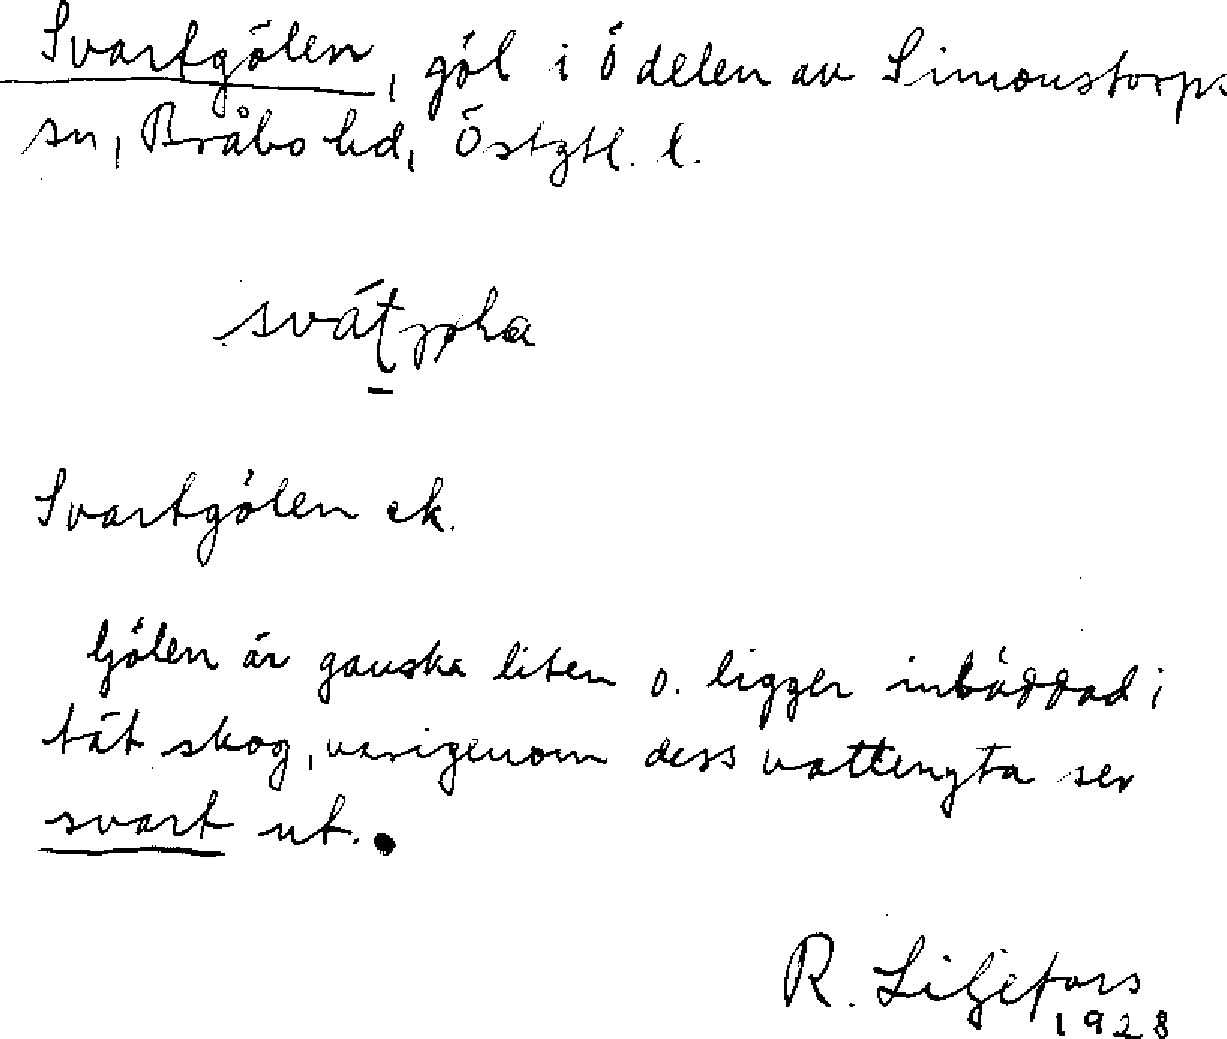 Svartgölen, göl i Ö delen av Simonstorps
sn, Bråbo hd, Östgtl. l.
Svartgölen ek.
Gölen är ganska liten o. ligger inbäddad i
tät skog, varigenom dess vattenyta ser
svart ut.
R. Liljefors
1928